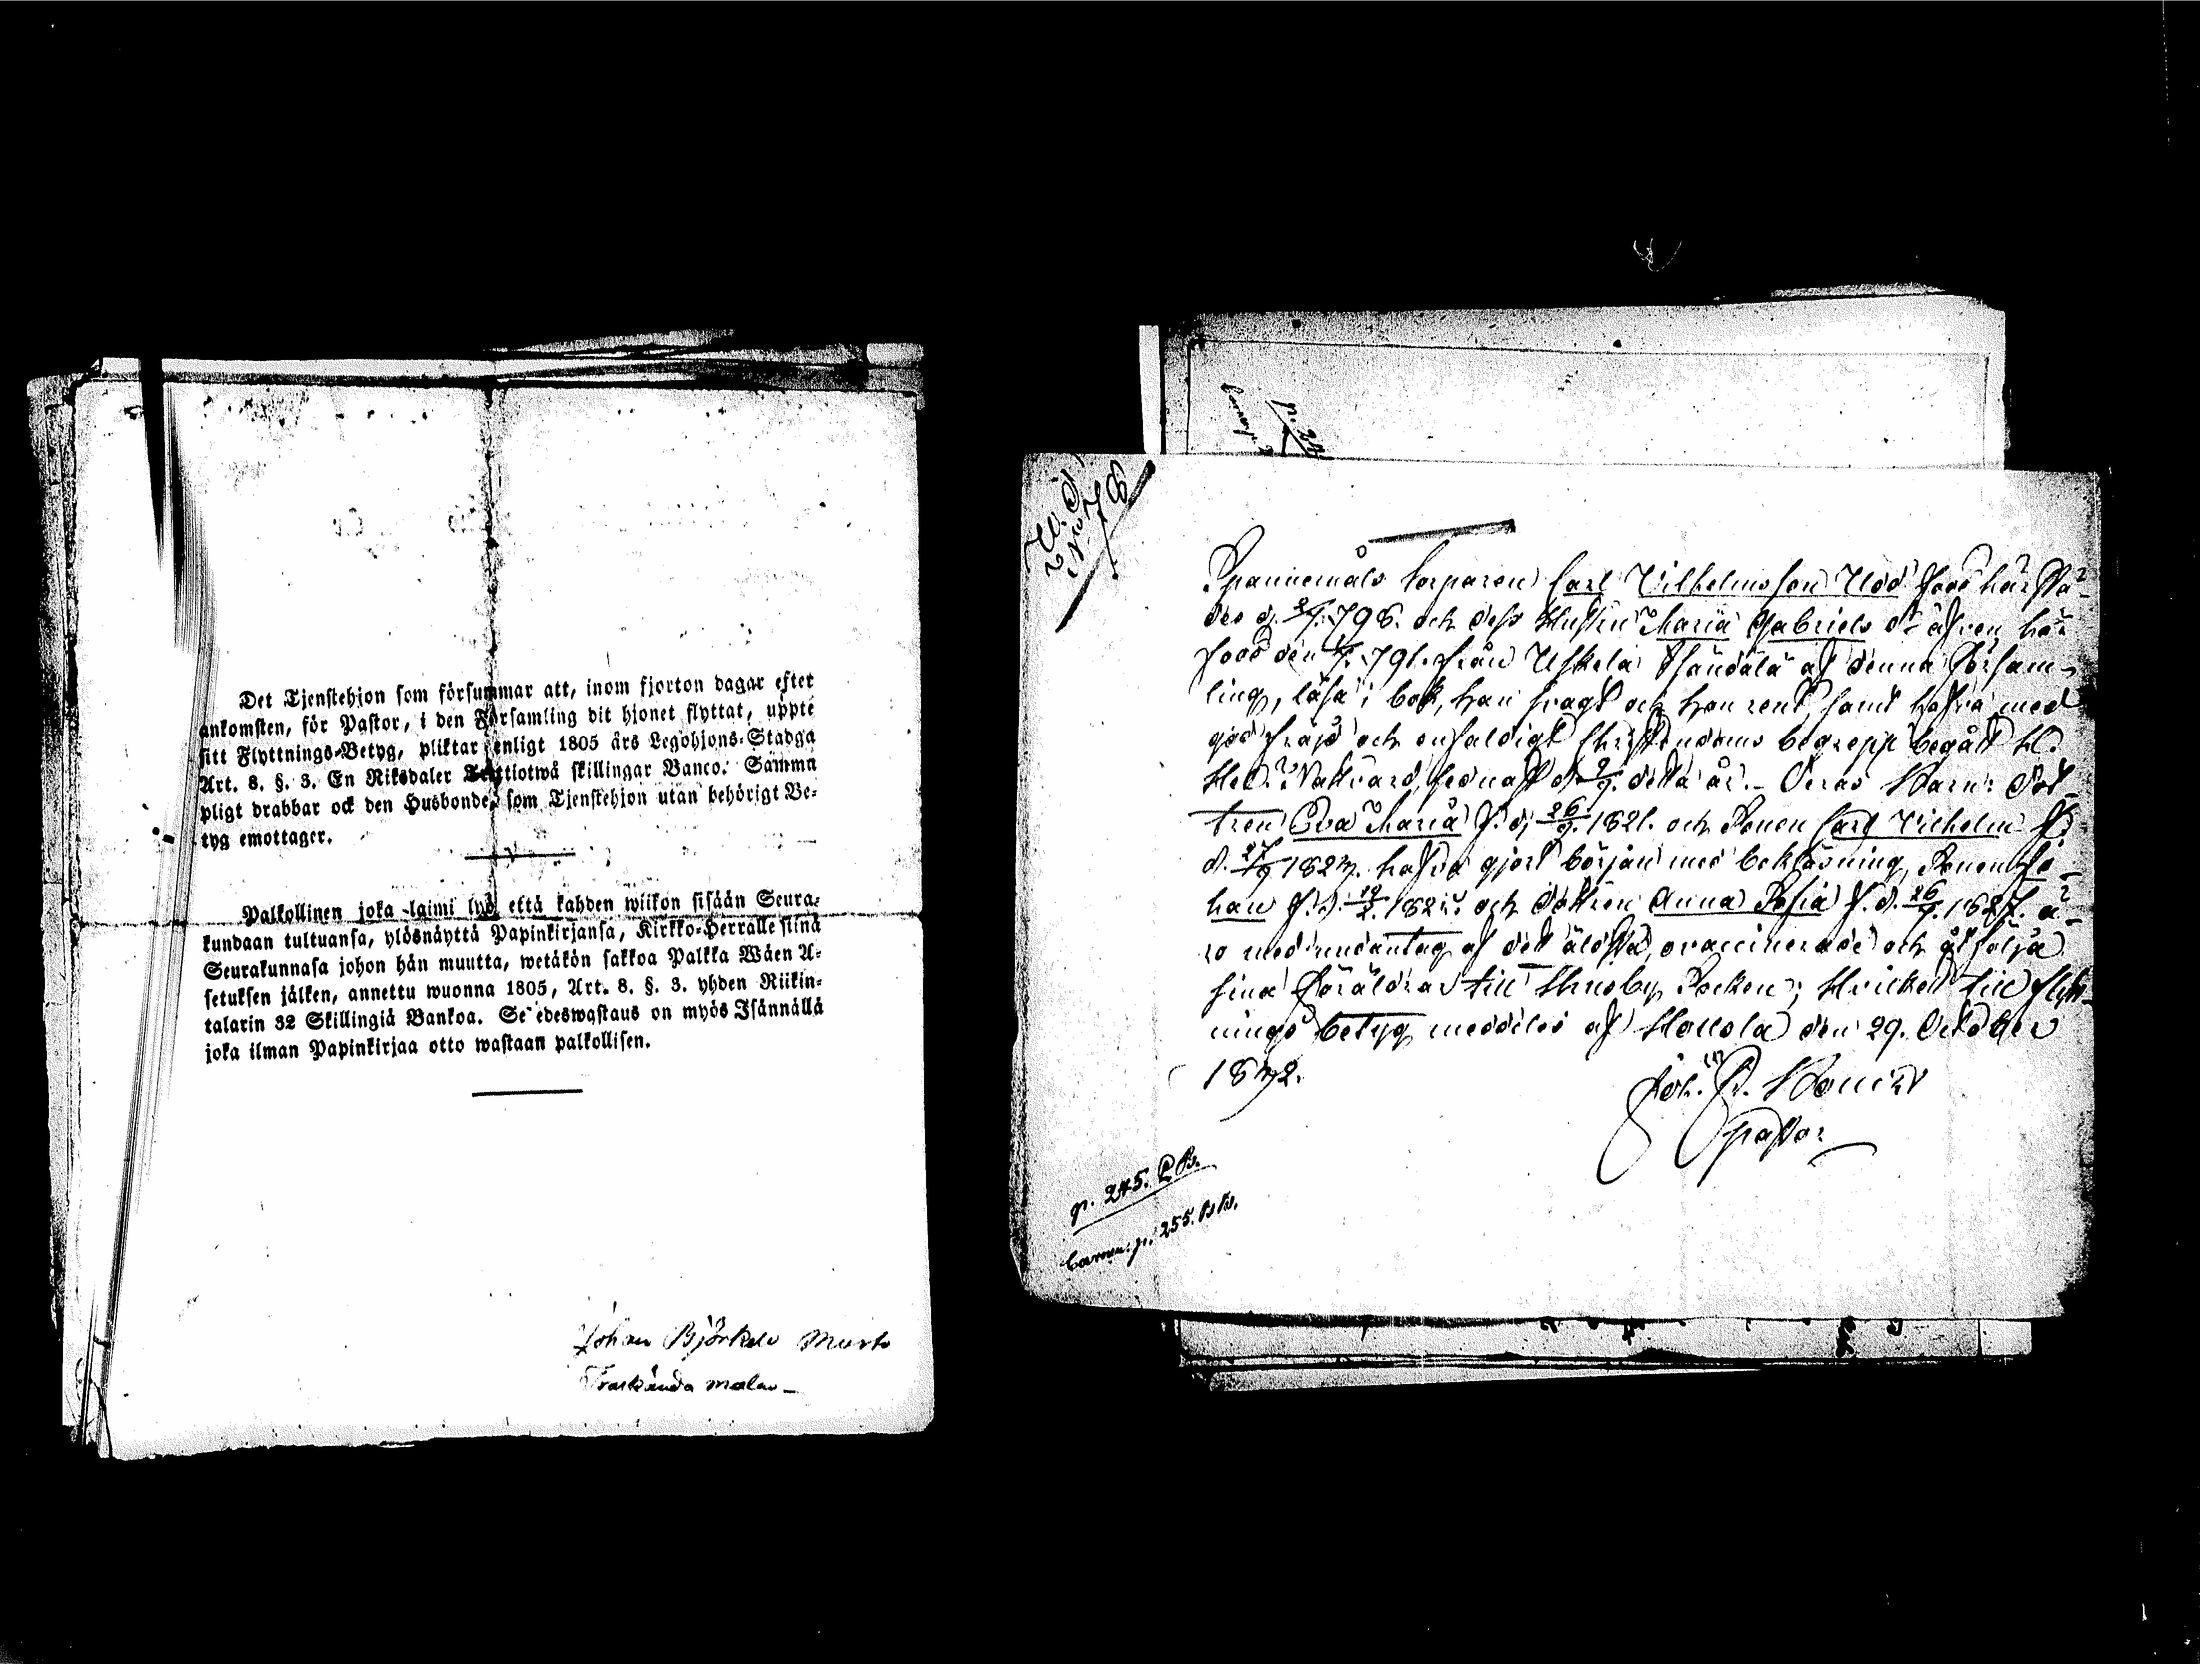 Det Tjenstehjon som försummar att, inom fjorton dagar efter
ankomsten, för Pastor, i den Församling dit hjonet flyttat, uppte
sitt Flyttnings-Betyg, pliktar enligt 1805 års Legohjons-Stadga
Art. 8. §. 3. En Riksdaler Trettiotwå skillingar Banco. Samma
pligt drabbar ock den Husbonde, som Tjenstehjon utan behörigt Be-
tyg emottager.
Palkollinen joka laimi lyö että kahden wiikon sisään Seura-
kundaan tultuansa, ylösnäyttä Papinkirjansa, Kirkko-Herralle siinä
Seurakunnasa johon hän muutta, wetäkön sakkoa Palkka Wäen A-
setuksen jälken, annettu wuonna 1805, Art. 8. §. 3. yhden Riikin-
talarin 32 Skillingiä Bankoa. Se edeswastaus on myös Isännällä
joka ilman Papinkirjaa otto wastaan palkollisen.
Johan Björkelo
Träskända
p. 24
No 78
Spannemåls torparen Carl Vilhelmsson född härstä-
des d. 798. och dess Hustru Maria Gabriels dr äfven här
född den 791. från Uskela af denna försam-
ling, läsa i bok, han svagt och hon rent, samt hafva med
god frejd och enfaldigt Christendoms begrepp begått H.
Hel. Nattvard, sednast d. 9/9. detta år. - Deras Barn: Dot-
tren Eva Maria f. d. 26/9. 1821. och Sonen Carl Vilhelm f.
d. 1823. hafva gjort början med bokläsning, Sonen Jo-
han f. d. 182 och dottren Anna Sofia f. d. 26 1827. ä-
ro med undantag af det äldsta, ovaccinerade och åtfölja
sina föräldrar till Thusby Socken; Hvilket till flytt-
nings betyg meddelas af Hollola den 29. October
1832.
Joh.
pastor
p. 245. C B.
p. 255.